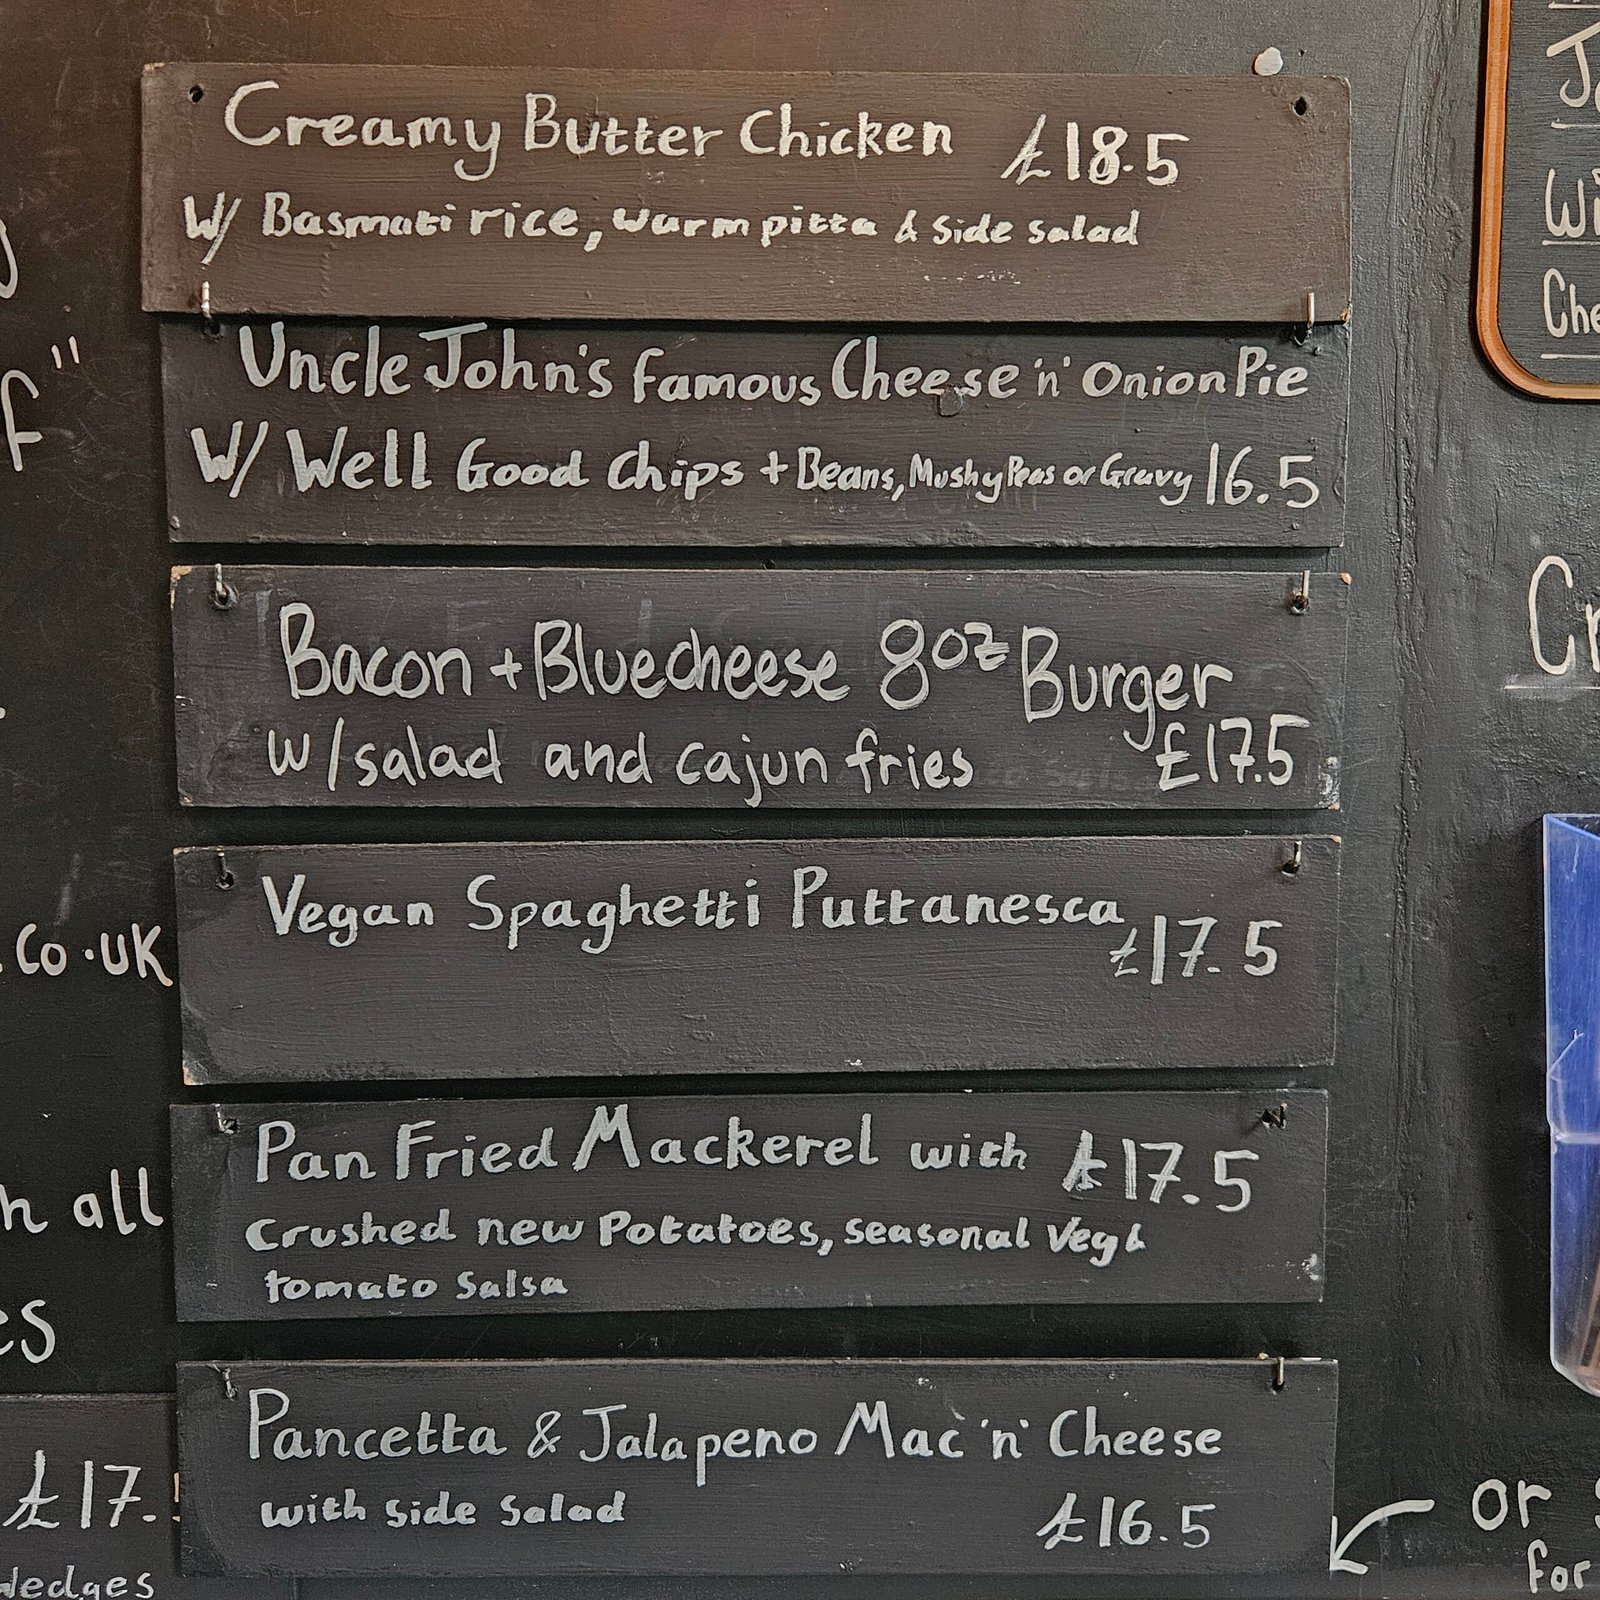 Creamy Butter Chicken £18.5
W/ Basmati rice, warm pitta & side salad
Uncle John's famous Cheese 'n' Onion Pie
W/ Well Good Chips + Beans, Mushy Peas or Gravy 16.5
Bacon + Bluecheese 8oz Burger
w/salad and cajun fries £17.5
Vegan Spaghetti Puttanesca
£17.5
Pan Fried Mackerel with £17.5
Crushed new Potatoes, seasonal Veg &
tomato Salsa
Pancetta & Jalapeno Mac 'n' Cheese
with side Salad £16.5
.co.uk
all
£17.
or
for